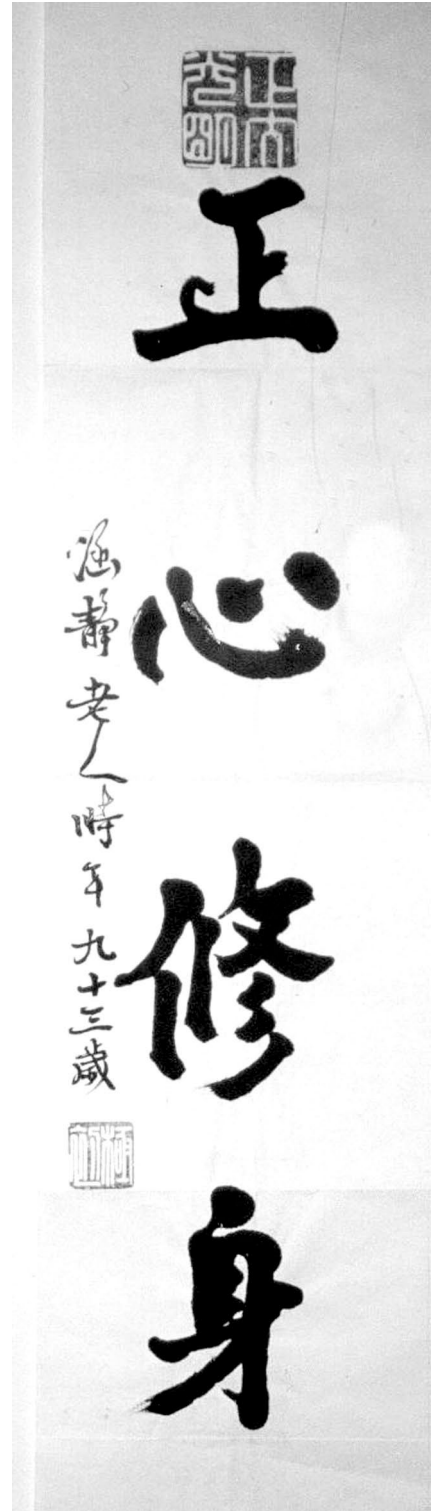 正心修身
涵靜老人時年九十三歲